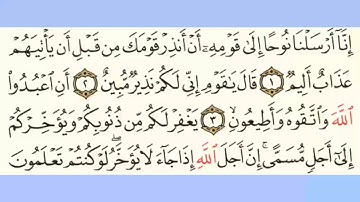 إِنَّآ أَرۡسَلۡنَا نُوحًا إِلَىٰ قَوۡمِهِۦٓ أَنۡ أَنذِرۡ قَوۡمَكَ مِن قَبۡلِ أَن يَأۡتِيَهُمۡ
عَذَابٌ أَلِيمٞ ١ قَالَ يَٰقَوۡمِ إِنِّي لَكُمۡ نَذِيرٞ مُّبِينٌ ٢ أَنِ ٱعۡبُدُواْ
ٱللَّهَ وَٱتَّقُوهُ وَأَطِيعُونِ ٣ يَغۡفِرۡ لَكُم مِّن ذُنُوبِكُمۡ وَيُؤَخِّرۡكُمۡ
إِلَىٰٓ أَجَلٖ مُّسَمًّىۚ إِنَّ أَجَلَ ٱللَّهِ إِذَا جَآءَ لَا يُؤَخَّرُۚ لَوۡ كُنتُمۡ تَعۡلَمُونَ